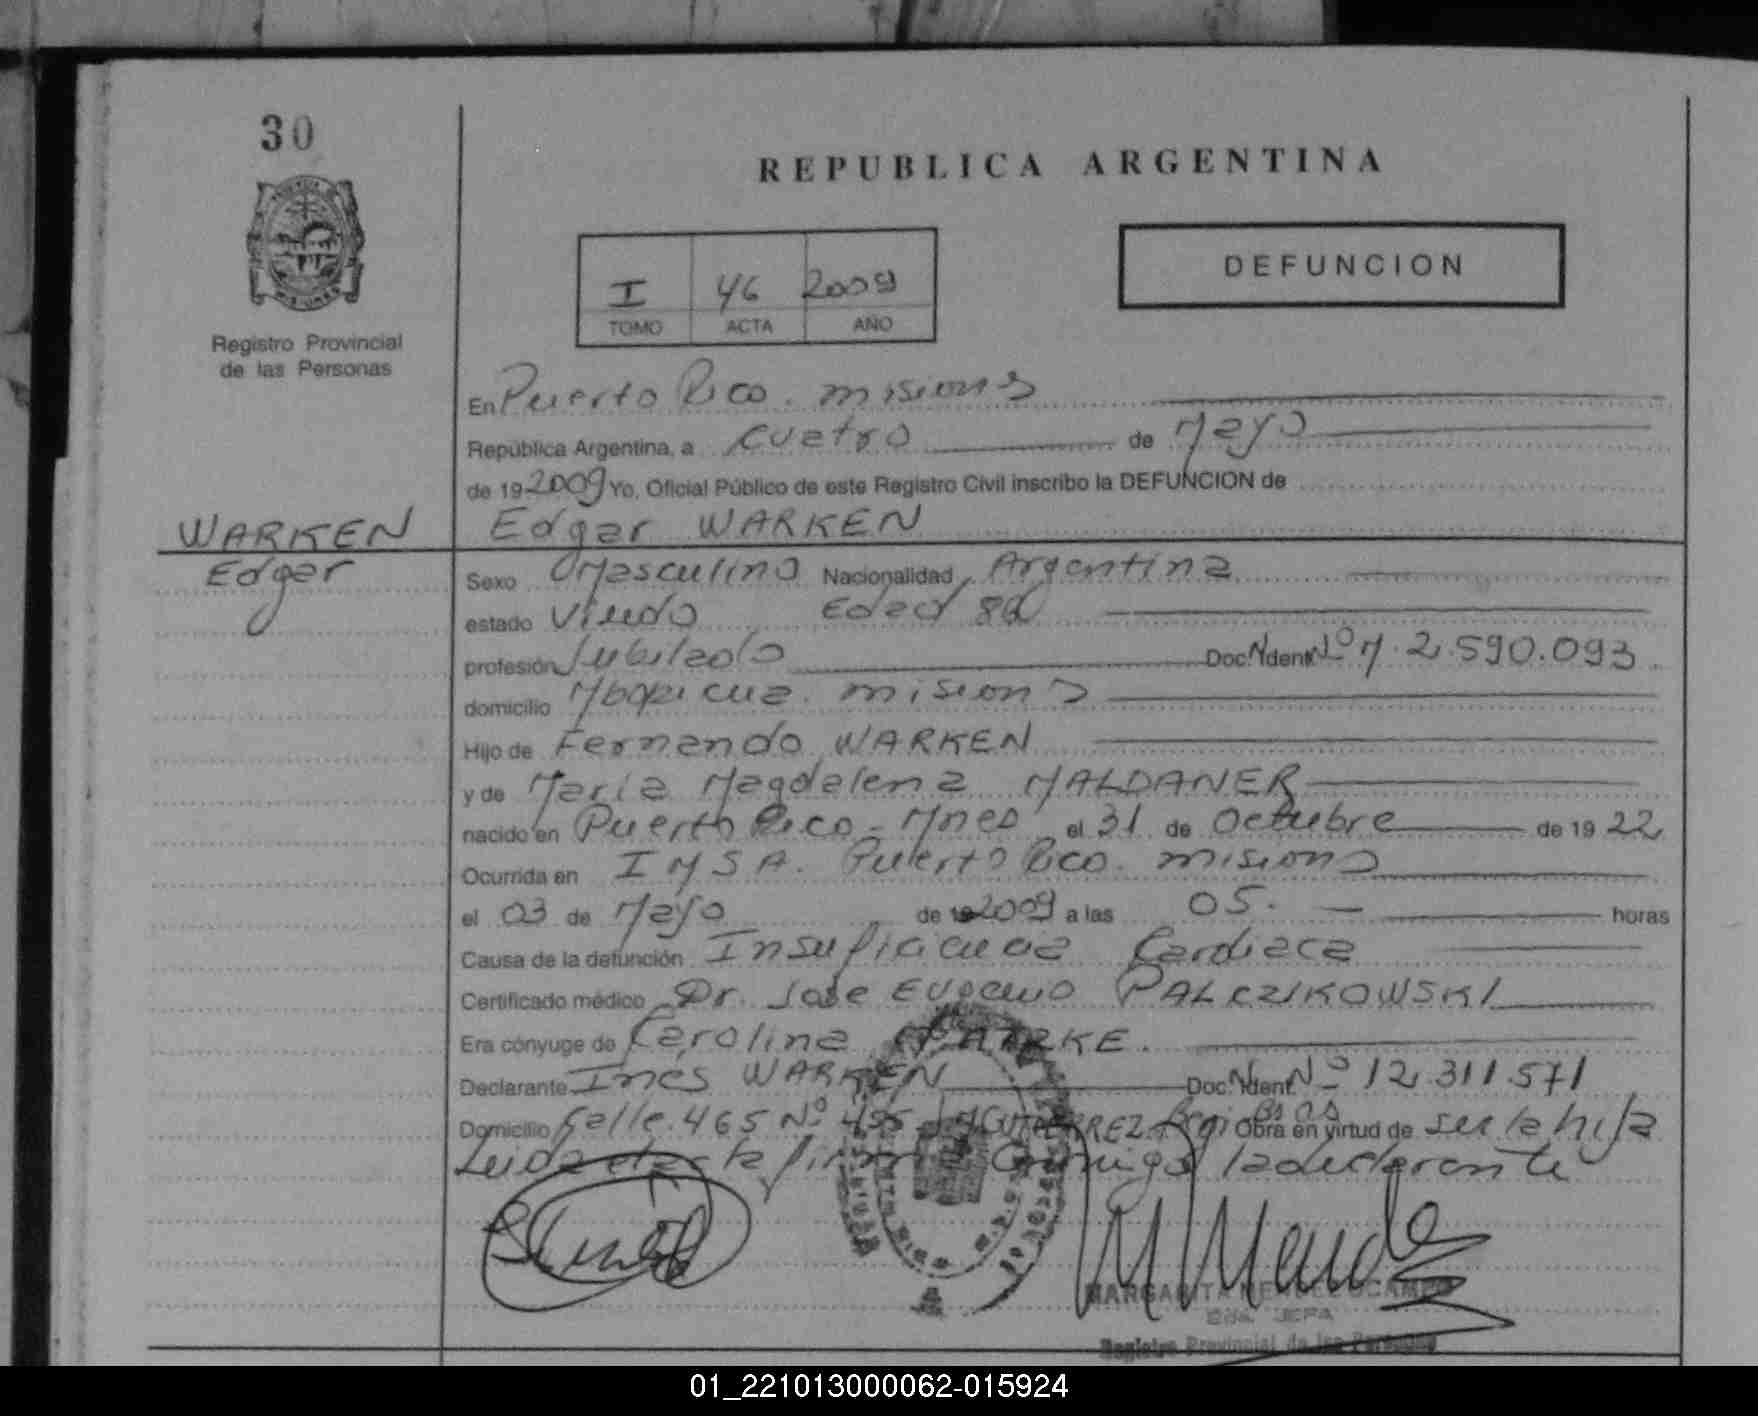 30
REPUBLICA ARGENTINA
I 46 2009
TOMO ACTA AÑO
DEFUNCION
Registro Provincial
de las Personas
En Puerto Rico. Misiones
República Argentina, a cuatro de Mayo
de 19 2009 Yo, Oficial Público de este Registro Civil inscribo la DEFUNCION de
WARKEN
Edgar
Edgar WARKEN
Sexo Masculino Nacionalidad Argentina
estado Viudo Edad 86
profesión Jubilado Doc. Ident. Nº M. 2.590.093
domicilio Mbopicua. Misiones
Hijo de Fernando WARKEN
y de María Magdalena MALDANER
nacido en Puerto Rico - Mnes el 31 de Octubre de 19 22
Ocurrida en IMSA. Puerto Rico. Misiones
el 03 de Mayo de 19 2009 a las 05. — horas
Causa de la defunción Insuficiencia Cardiaca
Certificado médico Dr. José Eugenio PALCZIKOWSKI
Era cónyuge de Carolina
Declarante Inés WARKEN Doc. Ident. Nº 12.311.571
Domicilio Calle 465 Nº GUTIERREZ Bs As Obra en virtud de ser la hija
Leida el acta firma Conmigo la declarante
MARGARITA
Jefa
Registro Provincial de las Personas
01_221013000062-015924